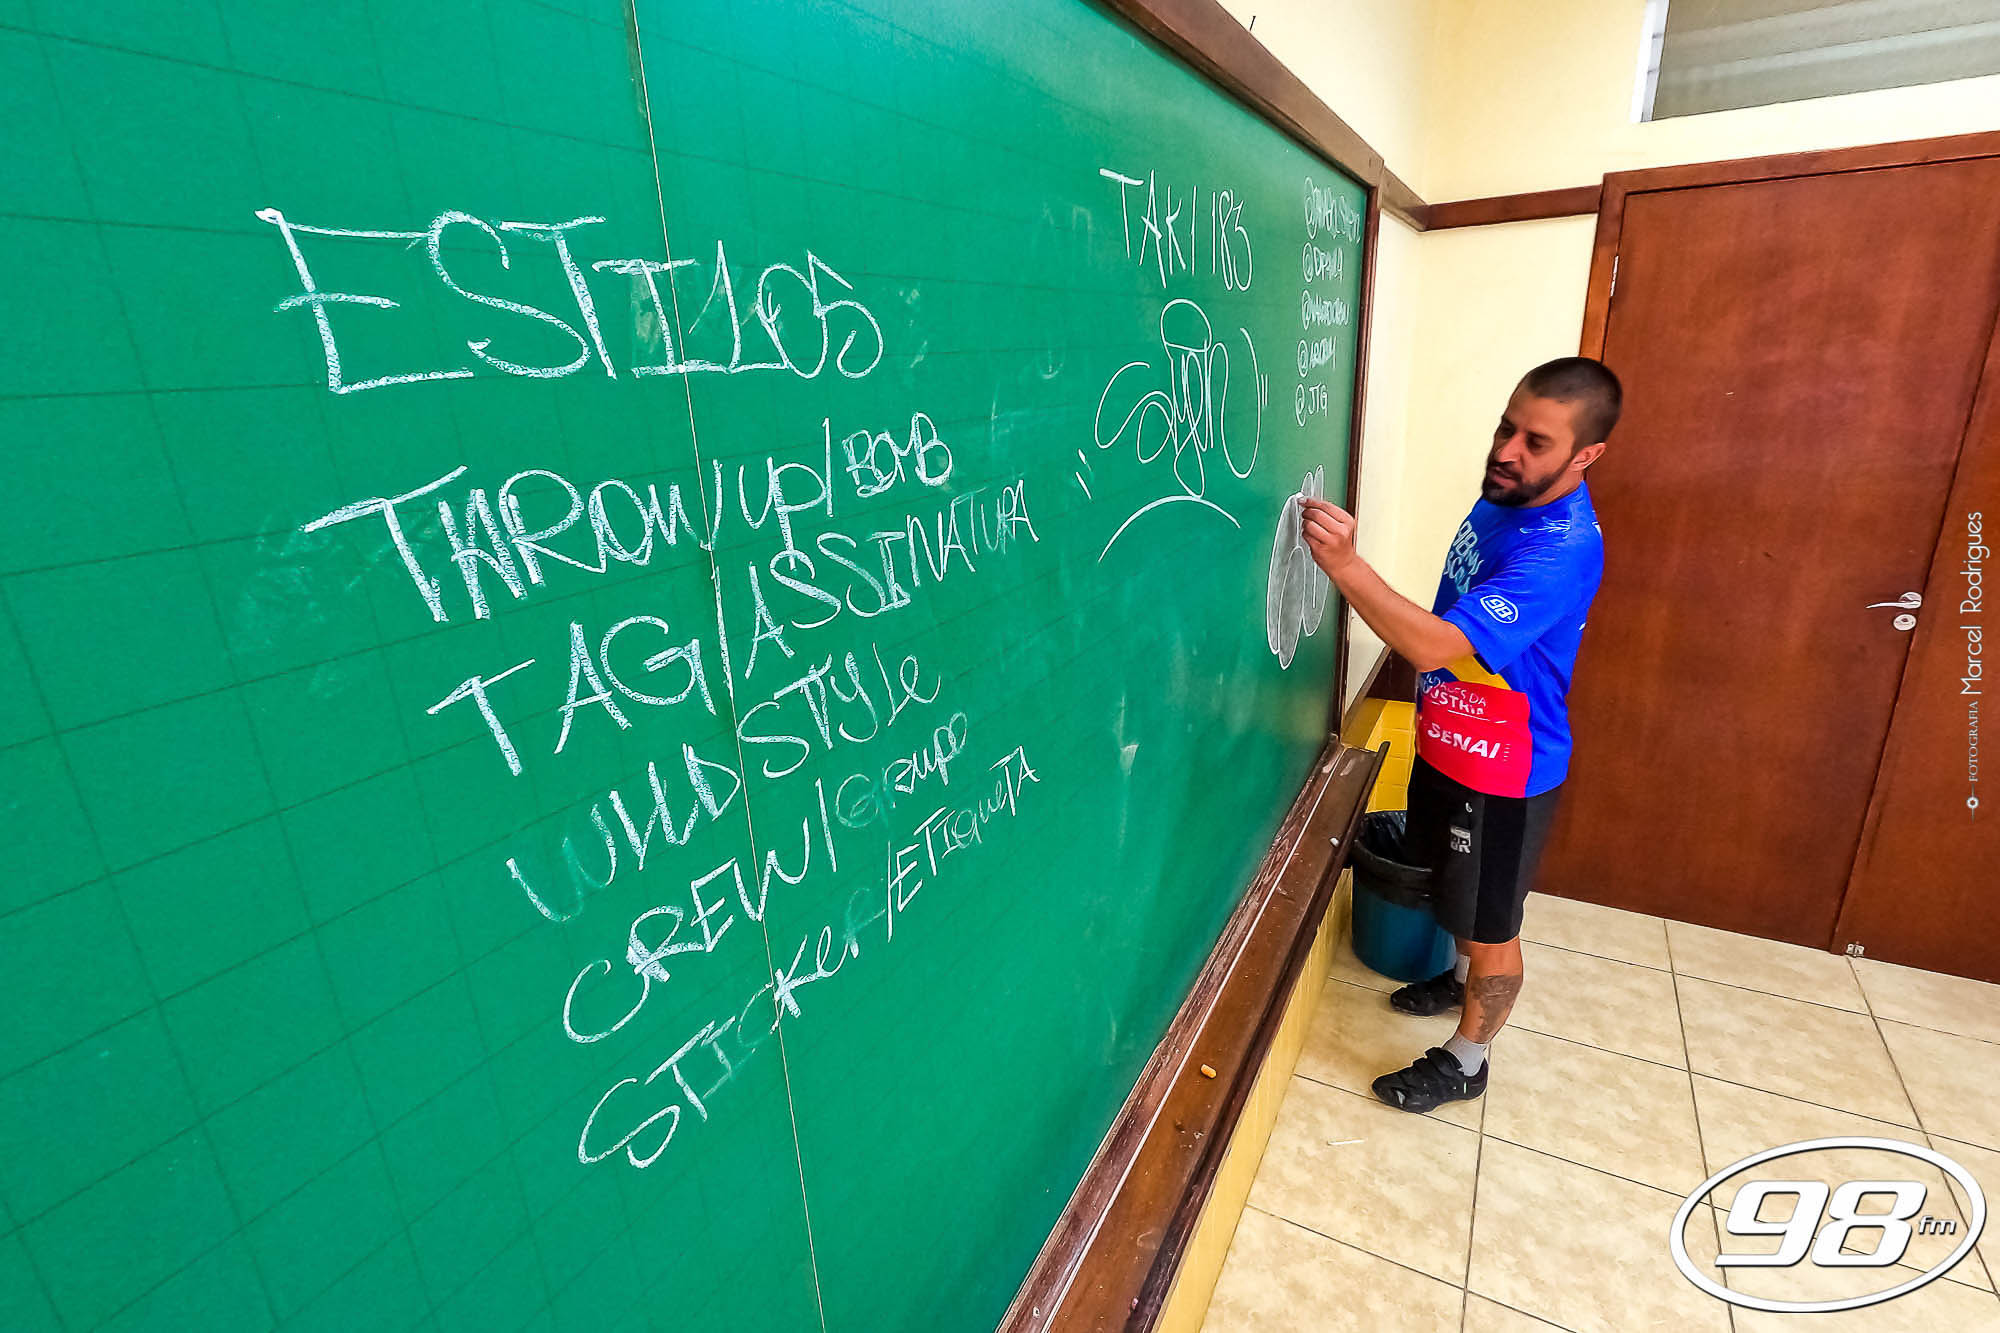 ESTILOS
THROW UP / BOMB
TAG / ASSINATURA
WILD STYLE
CREW / GRUPO
STICKER / ETIQUETA
TAKI 183
@JTG
98
SENAI
FOTOGRAFIA Marcel Rodrigues
98 fm